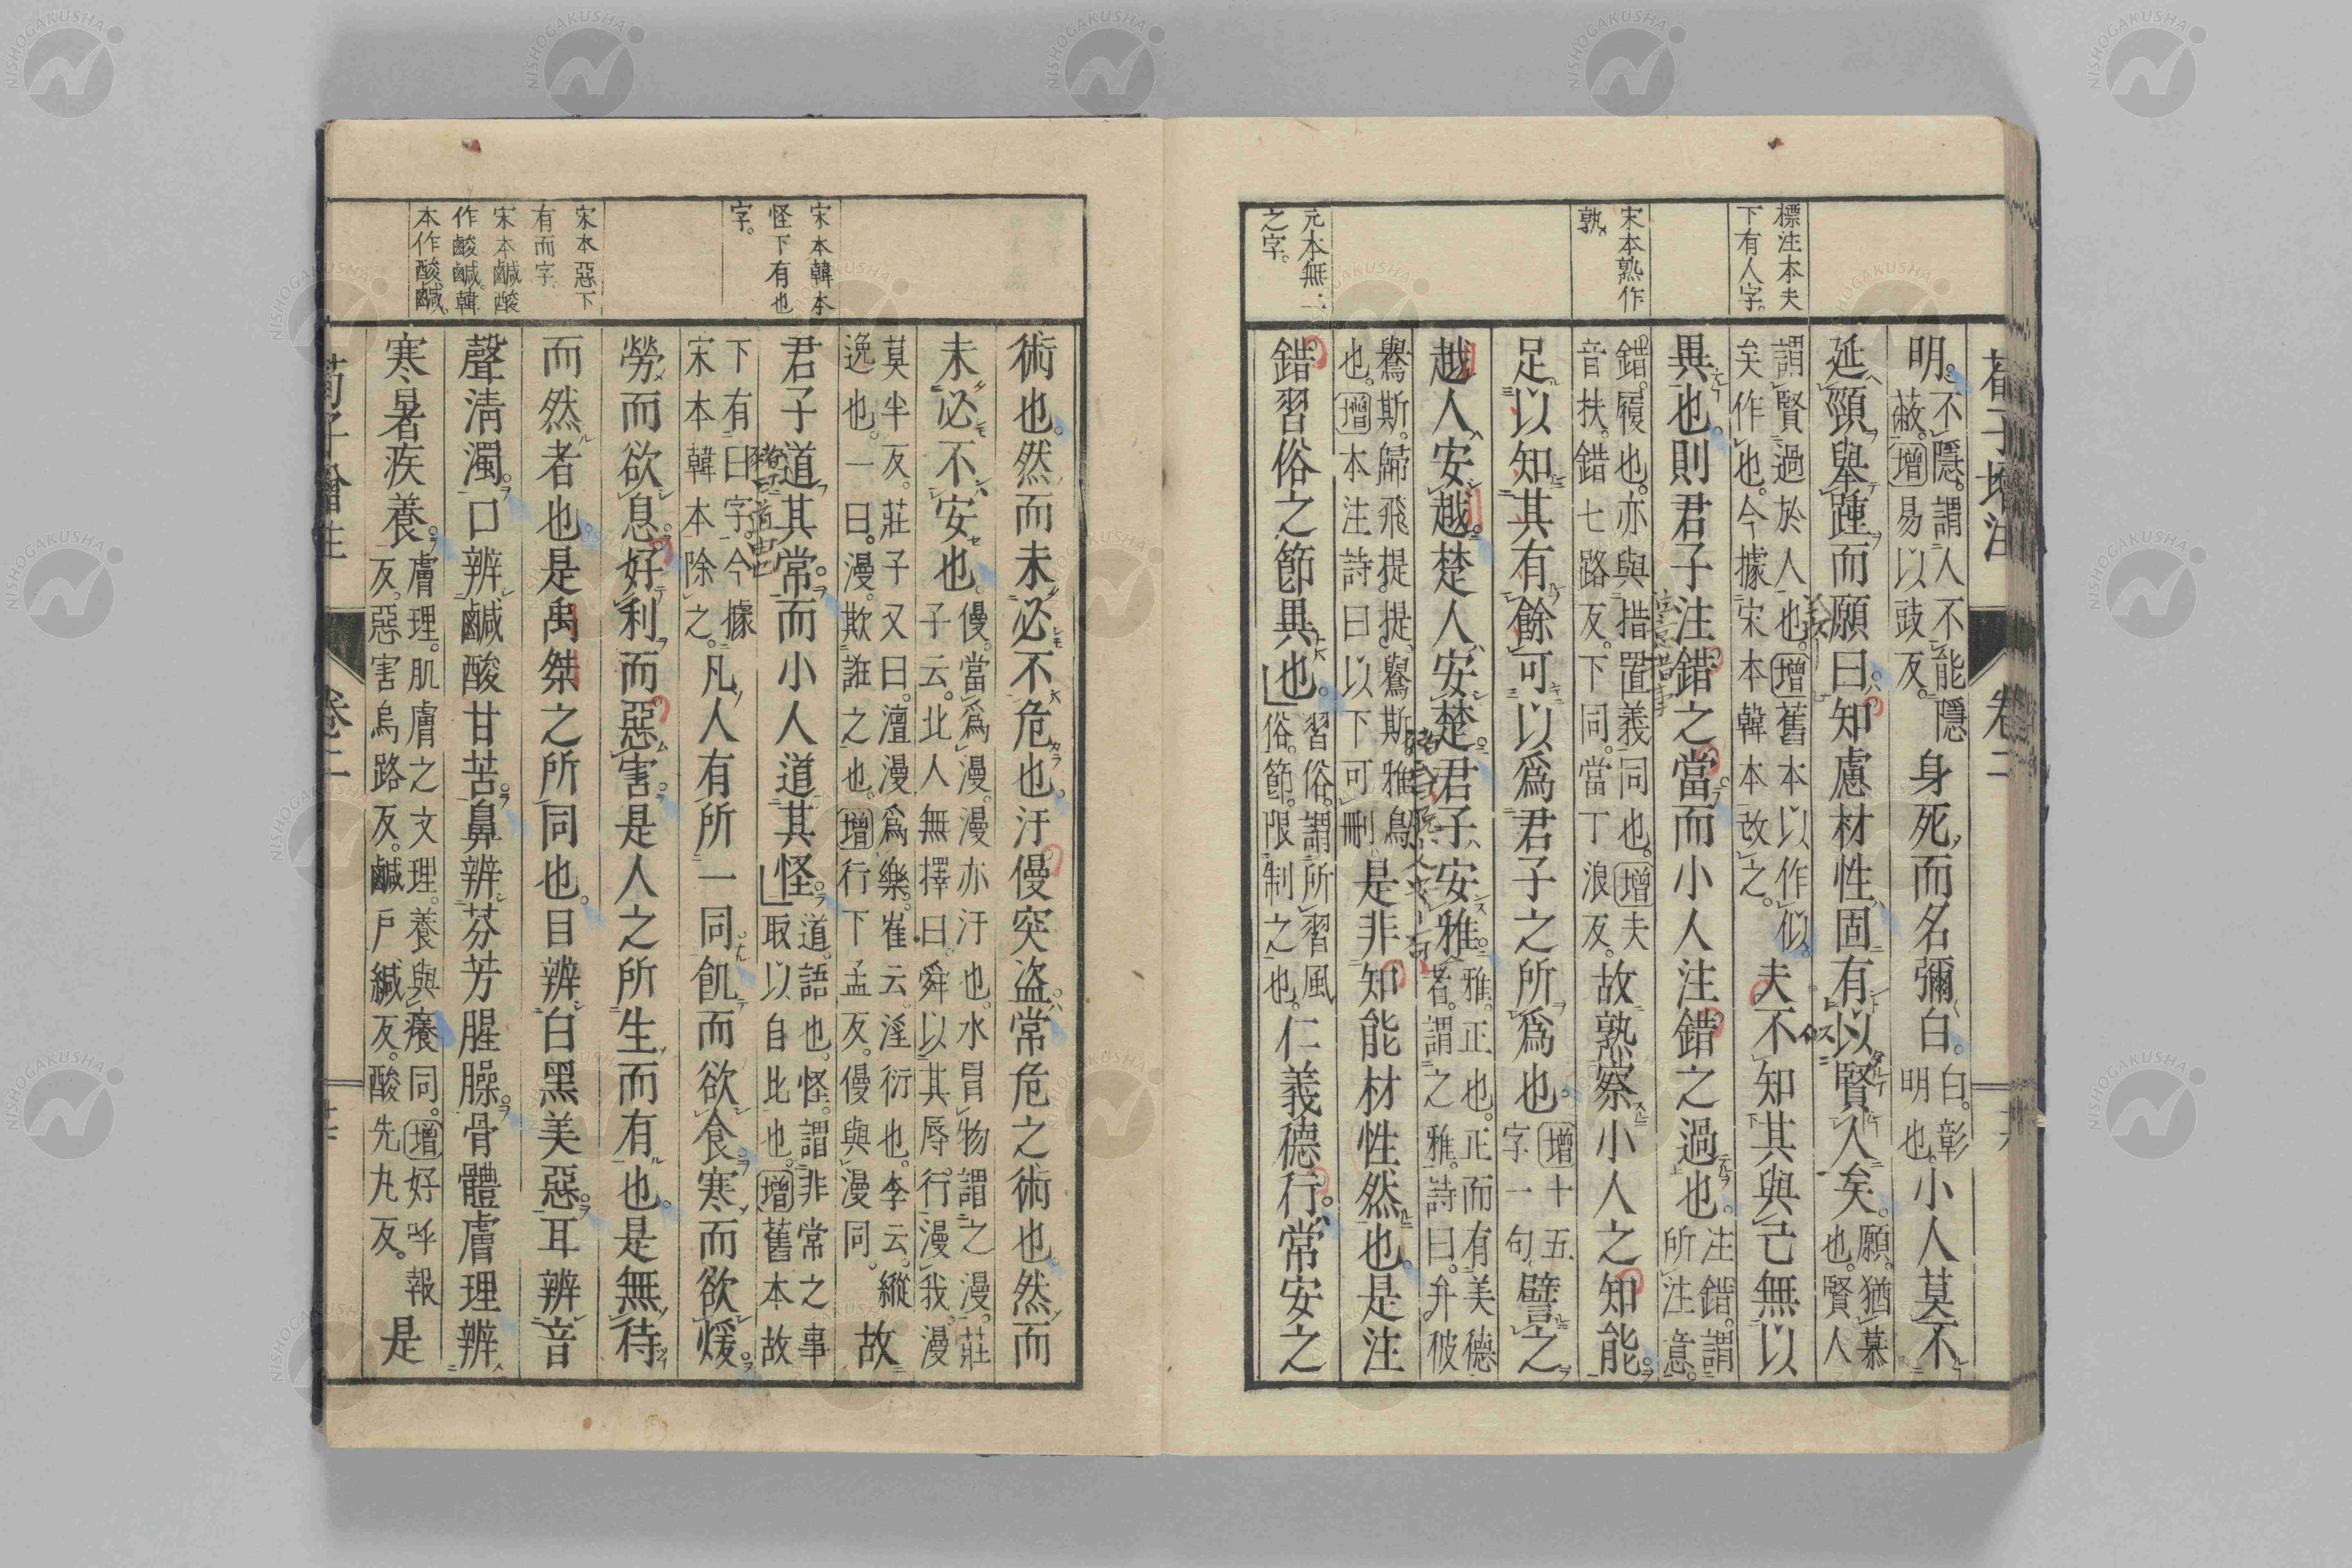 標注本夫
下有人字。
宋本熟作
孰。
元本無二
之字。
荀子增注 卷二
明。不隱。謂人不能隱
蔽。增易以豉反。身死而名彌白。白。彰
明也。小人莫不
延頸舉踵而願曰知慮材性固有以賢人矣。願。猶慕
也。賢人
謂賢過於人也。增舊本以作似。
矣作也。今據宋本韓本改之。夫不知其與己無以
異也。則君子注錯之當而小人注錯之過也。注錯。謂
所注意。
錯。履也。亦與措置義同也。增夫
音扶。錯七路反。下同。當丁浪反。故熟察小人之知能
足以知其有餘可以爲君子之所爲也。增十五
字一句。譬之
越人安越。楚人安楚。君子安雅。雅。正也。正而有美德
者。謂之雅。詩曰。弁彼
鸒斯。歸飛提提。鸒斯雅烏
也。增本注詩曰以下可刪。是非知能材性然也。是注
錯習俗之節異也。習俗。謂所習風
俗。節。限制之也。仁義德行。常安之
宋本韓本
怪下有也
字。
宋本惡下
有而字
宋本鹹酸
作酸鹹。韓
本作酸鹹。
術也。然而未必不危也。汙僈突盜。常危之術也。然而
未必不安也。僈。當爲漫。漫亦汙也。水冒物謂之漫。莊
子云。北人無擇曰。舜以其辱行漫我。漫
莫半反。莊子又曰。澶漫爲樂。崔云。淫衍也。李云。縱
逸也。一曰。漫。欺誑之也。增行下孟反。僈與漫同。故
君子道其常。而小人道其怪。道。語也。怪。謂非常之事
取以自比也。增舊本故
下有曰字。今據
宋本韓本除之。凡人有所一同。飢而欲食。寒而欲煖。
勞而欲息。好利而惡害。是人之所生而有也。是無待
而然者也。是禹桀之所同也。目辨白黑美惡。耳辨音
聲淸濁。口辨鹹酸甘苦。鼻辨芬芳腥臊。骨體膚理辨
寒暑疾養。膚理。肌膚之文理。養與癢同。增好呼報
反。惡害烏路反。鹹戶緘反。酸先丸反。是